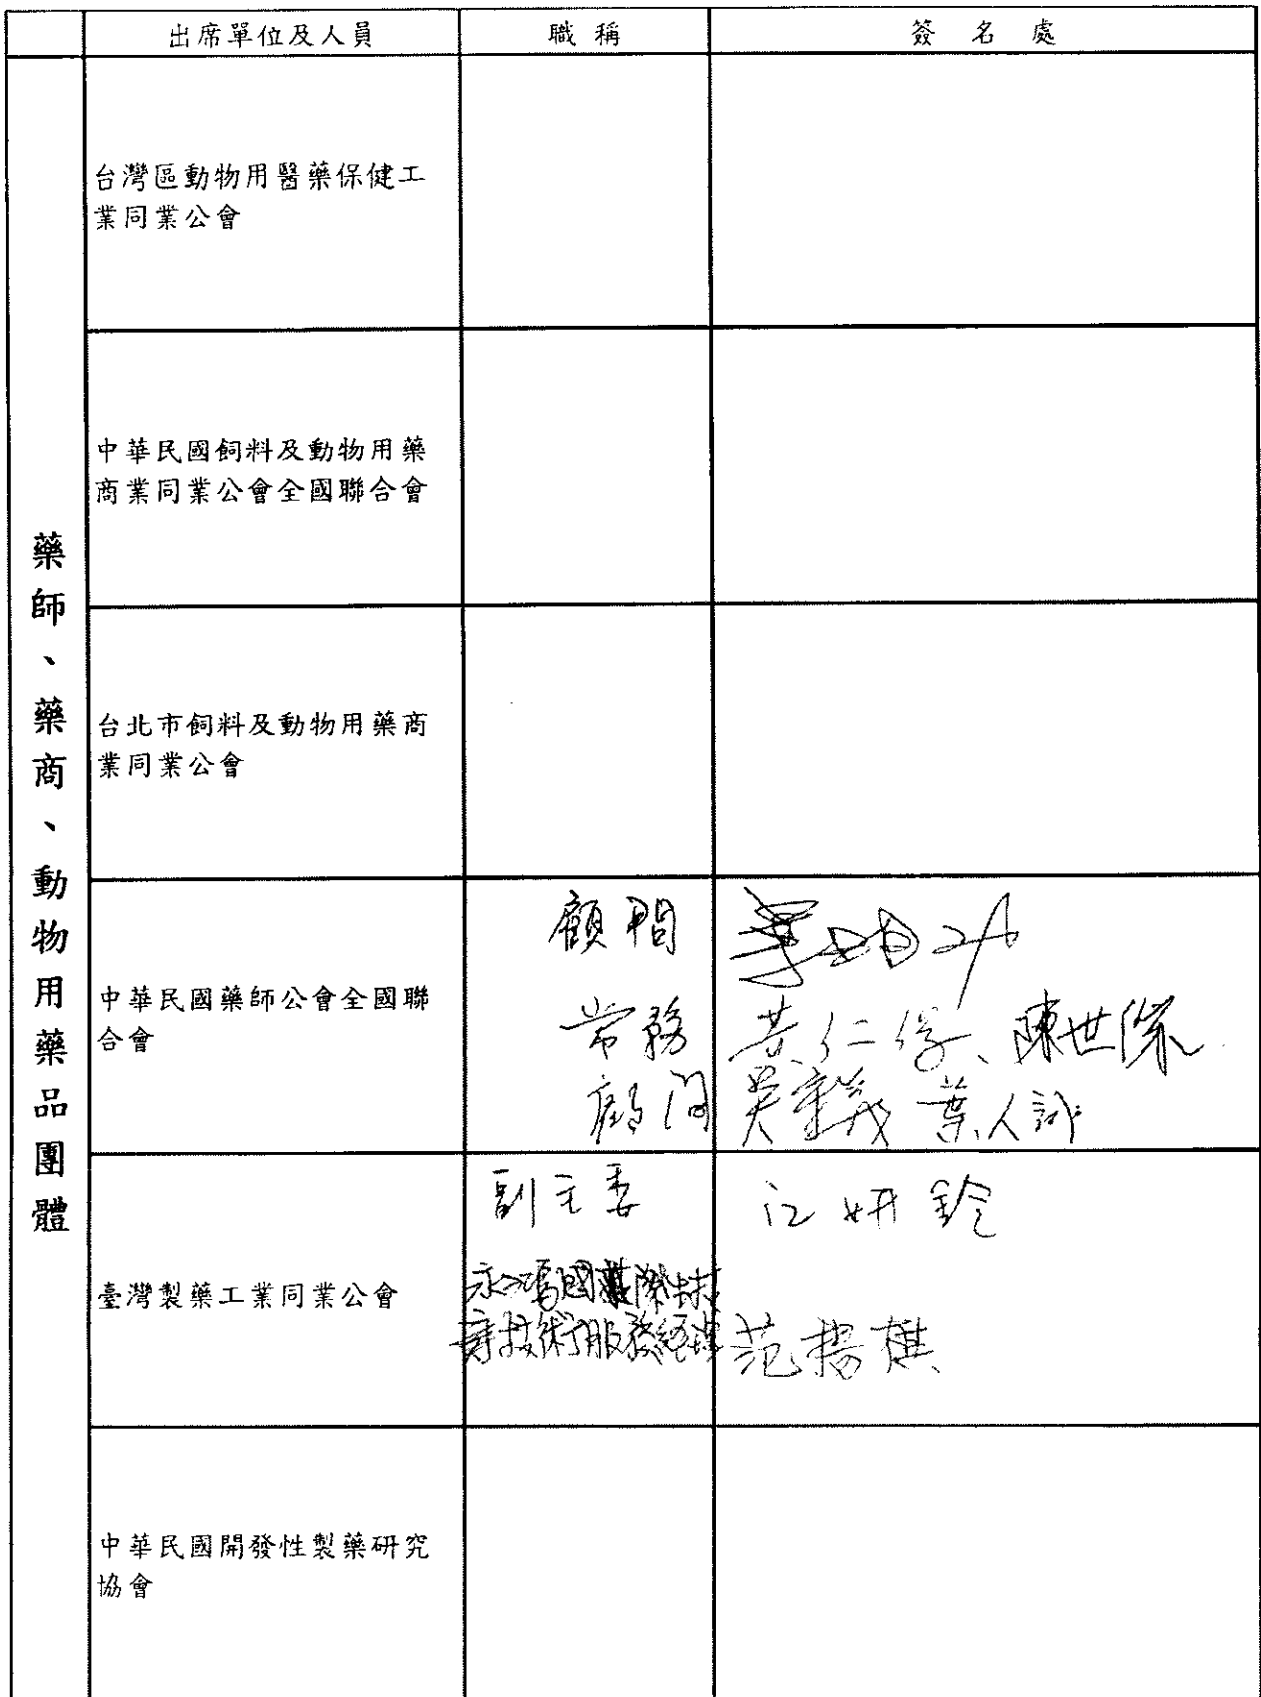 出席單位及人員 職稱 簽名處
藥師、藥商、動物用藥品團體
台灣區動物用醫藥保健工
業同業公會
中華民國飼料及動物用藥
商業同業公會全國聯合會
台北市飼料及動物用藥商
業同業公會
中華民國藥師公會全國聯
合會
顧問
常務 黃仁俊、陳世傑
顧問 葉人誠
臺灣製藥工業同業公會
副主委 江妍鈴
國際
技術服務經理 范揚樵
中華民國開發性製藥研究
協會